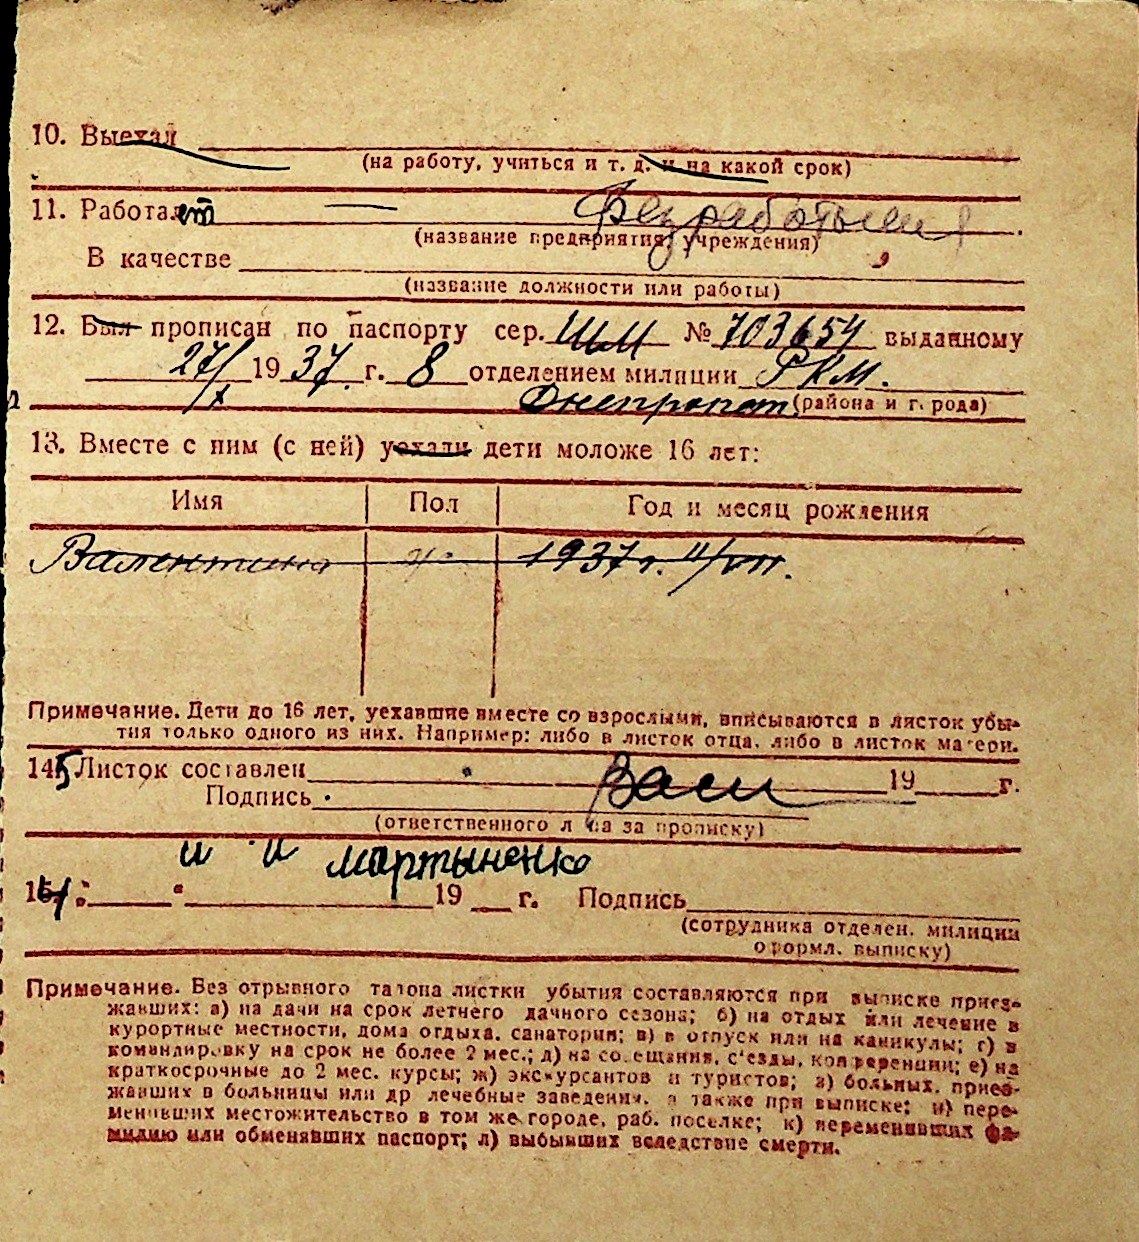 10. Выехал
(на работу, учиться и т. д. и на какой срок)
11. Работает — Безработный
(название предприятия, учреждения)
В качестве
(название должности или работы)
12. Был прописан по паспорту сер. ШМ № 703654 выданному
27/X 1937 г. 8 отделением милиции РКМ.
Днепропет (района и города)
13. Вместе с ним (с ней) уехали дети моложе 16 лет:
Имя Пол Год и месяц рождения
Валентина ж. 1937 г. 11/VII.
Примечание. Дети до 16 лет, уехавшие вместе со взрослыми, вписываются в листок убы-
тия только одного из них. Например: либо в листок отца, либо в листок матери.
145 Листок составлен 19 г.
Подпись
(ответственного лица за прописку)
Мартыненко
19 г. Подпись
(сотрудника отделен. милиции
оформл. выписку)
Примечание. Без отрывного талона листки убытия составляются при выписке приез-
жавших: а) на дачи на срок летнего дачного сезона; б) на отдых или лечение в
курортные местности, дома отдыха, санатории; в) в отпуск или на каникулы; г) в
командировку на срок не более 2 мес.; д) на совещания, с'езды, конференции; е) на
краткосрочные до 2 мес. курсы; ж) экскурсантов и туристов; з) больных, приез-
жавших в больницы или др лечебные заведения, а также при выписке; и) пере-
менивших местожительство в том же городе, раб. поселке; к) переменивших фа-
милию или обменявших паспорт; л) выбывших вследствие смерти.